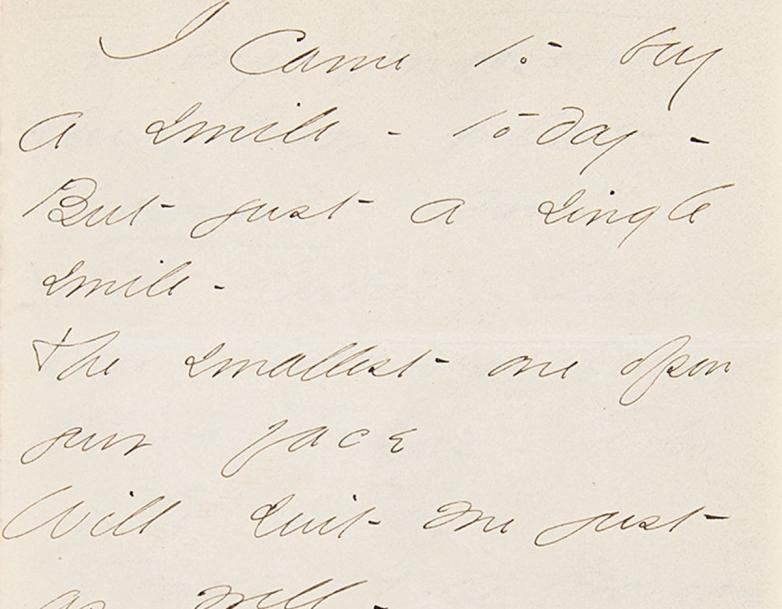 I came to buy
a smile - today -
But just a single
smile -
The smallest one upon
your face
Will suit me just
as well -